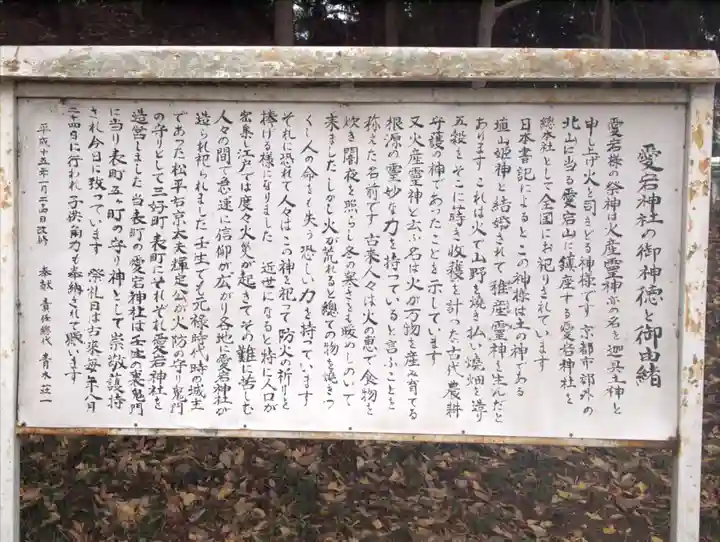 愛宕神社の御神徳と御由緒
愛宕様の祭神は火産霊神亦の名を迦具土神と
申し上げ火を司どる神様です 京都市郊外の
北山に当る愛宕山に鎮座する愛宕神社を
総本社として全国にお祀りされています
日本書記によるとこの神様は土の神である
埴山姫神と結婚されて稚産霊神を生んだと
あります これは火で山野を焼き払い焼畑を造り
五穀をそこに蒔き収穫を計った古代農耕
守護の神であったことを示しています
又火産霊神と云ふ名は火が万物を産み育てる
根源の霊妙な力を持っていると言ふことを
称えた名前です 古来人々は火の恵で食物を
炊き闇夜を照らし冬の寒さも暖めしのいで
来ました しかし火が荒れると総ての物を焼きつ
くし人の命をも失う恐しい力を持っています
それに恐れて人々はこの神を祀って防火の祈りを
捧げる様になりました 近世になると特に人口が
密集した江戸では度々火災が起きてその難に苦しむ
人々の間で急速に信仰が広がり各地に愛宕神社が
造られ祀られました 壬生でも元禄時代時の城主
であった松平右京大夫輝定公が火防の守り鬼門
の守りとして三好町表町にそれぞれ愛宕神社を
造営しました 当表町の愛宕神社は壬生の裏鬼門
に当り表町五ヶ町の守り神として崇敬護持
され今日に致っています 祭礼日は古来毎年八月
二十四日に行われ子供角力も奉納されて賑います
平成十五年一月二十四日改修 奉献 責任総代 青木荘一